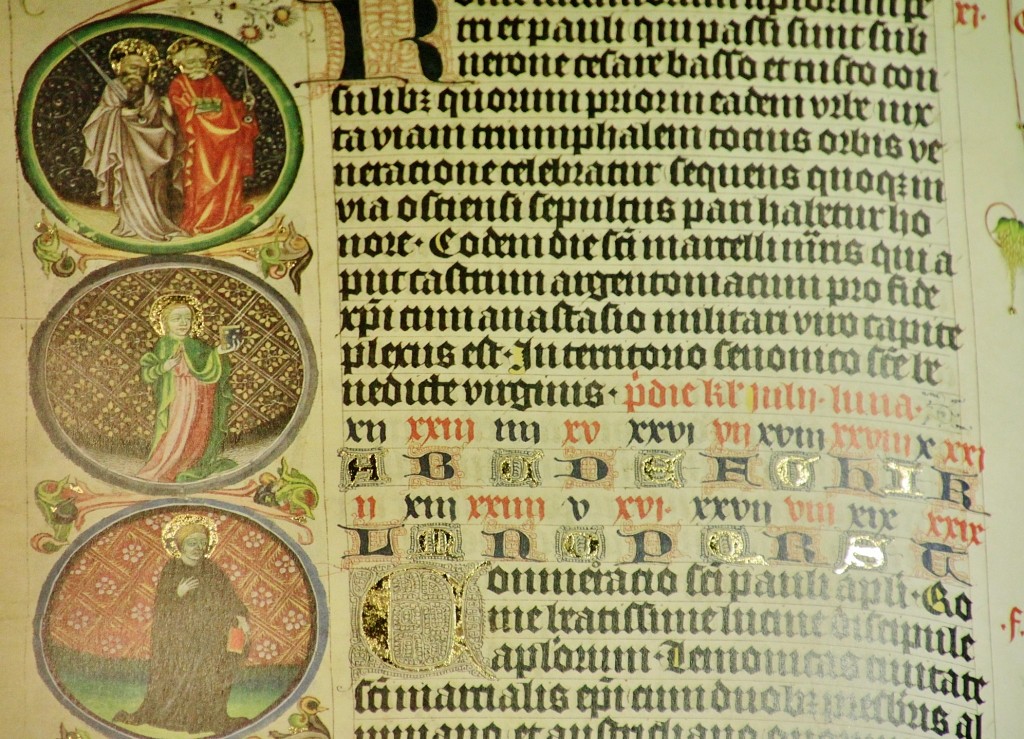 tri et pauli qui passi sunt sub
nerone cesare basso et tusco con
sulibz quorum prior in eadem vrbe iux
ta viam triumphalem tocius orbis ve
neracione celebratur sequens quoqz in
via ostiensi sepultus pari habetur ho
nore · Eodem die sci marcelli mris qui a
put castrum argentomacum pro fide
xpi cum anastasio militari viro capite
plexus est · In territorio senonico sce be
nedicte virginis · pdie kl' julij · luna ·
xii xxiii iiii xv xxvi vii xviii xxviiii x xxi
A B C D E F G H I K
ii xiii xxiiii v xvi · xxvii viii xix xxix
L M N O P Q R S T
Commeracio sci pauli apli · Ro
me beatissime lucine discipule
aplorum · Lemonicas ciuitate
sci marcialis epi cum duobz presbris al
piniano et austricliano
xi ·